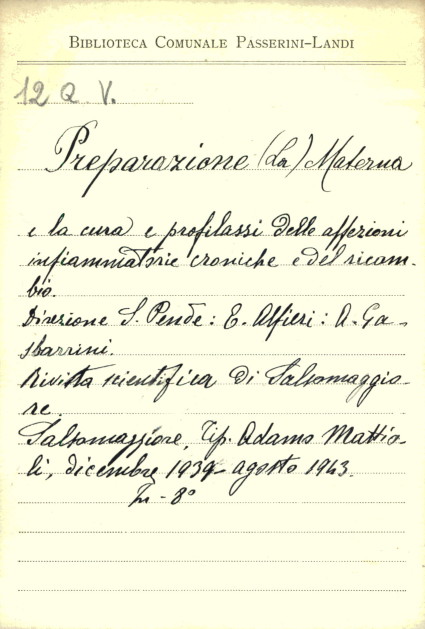 BIBLIOTECA COMUNALE PASSERINI-LANDI
12 Q. V.
Preparazione (La) Materna
e la cura e profilassi delle affezioni
infiammatorie croniche e del ricam-
bio.
Direzione S. Pende: E. Alfieri: A. Ga-
sbarrini.
Rivista scientifica di Salsomaggio-
re.
Salsomaggiore, Tip. Adamo Mattio-
li, dicembre 1939 - agosto 1943.
In - 8°